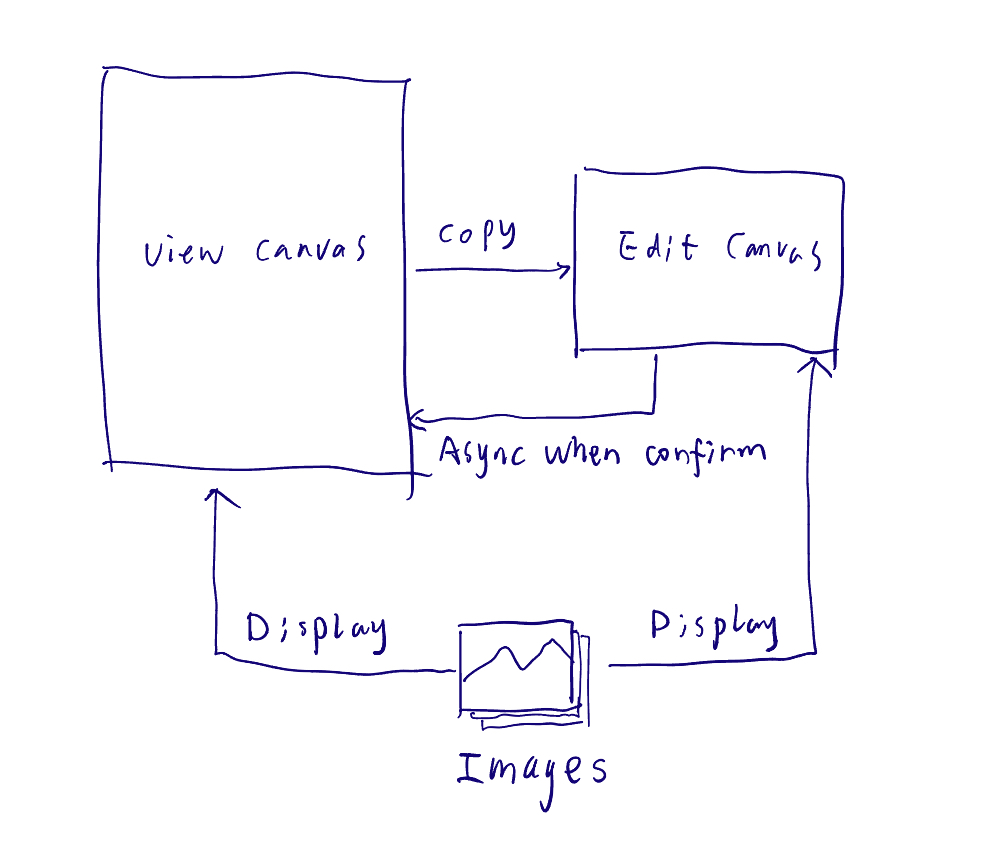 copy
View Canvas
Edit Canvas
Async when confirm
Display
Display
Images